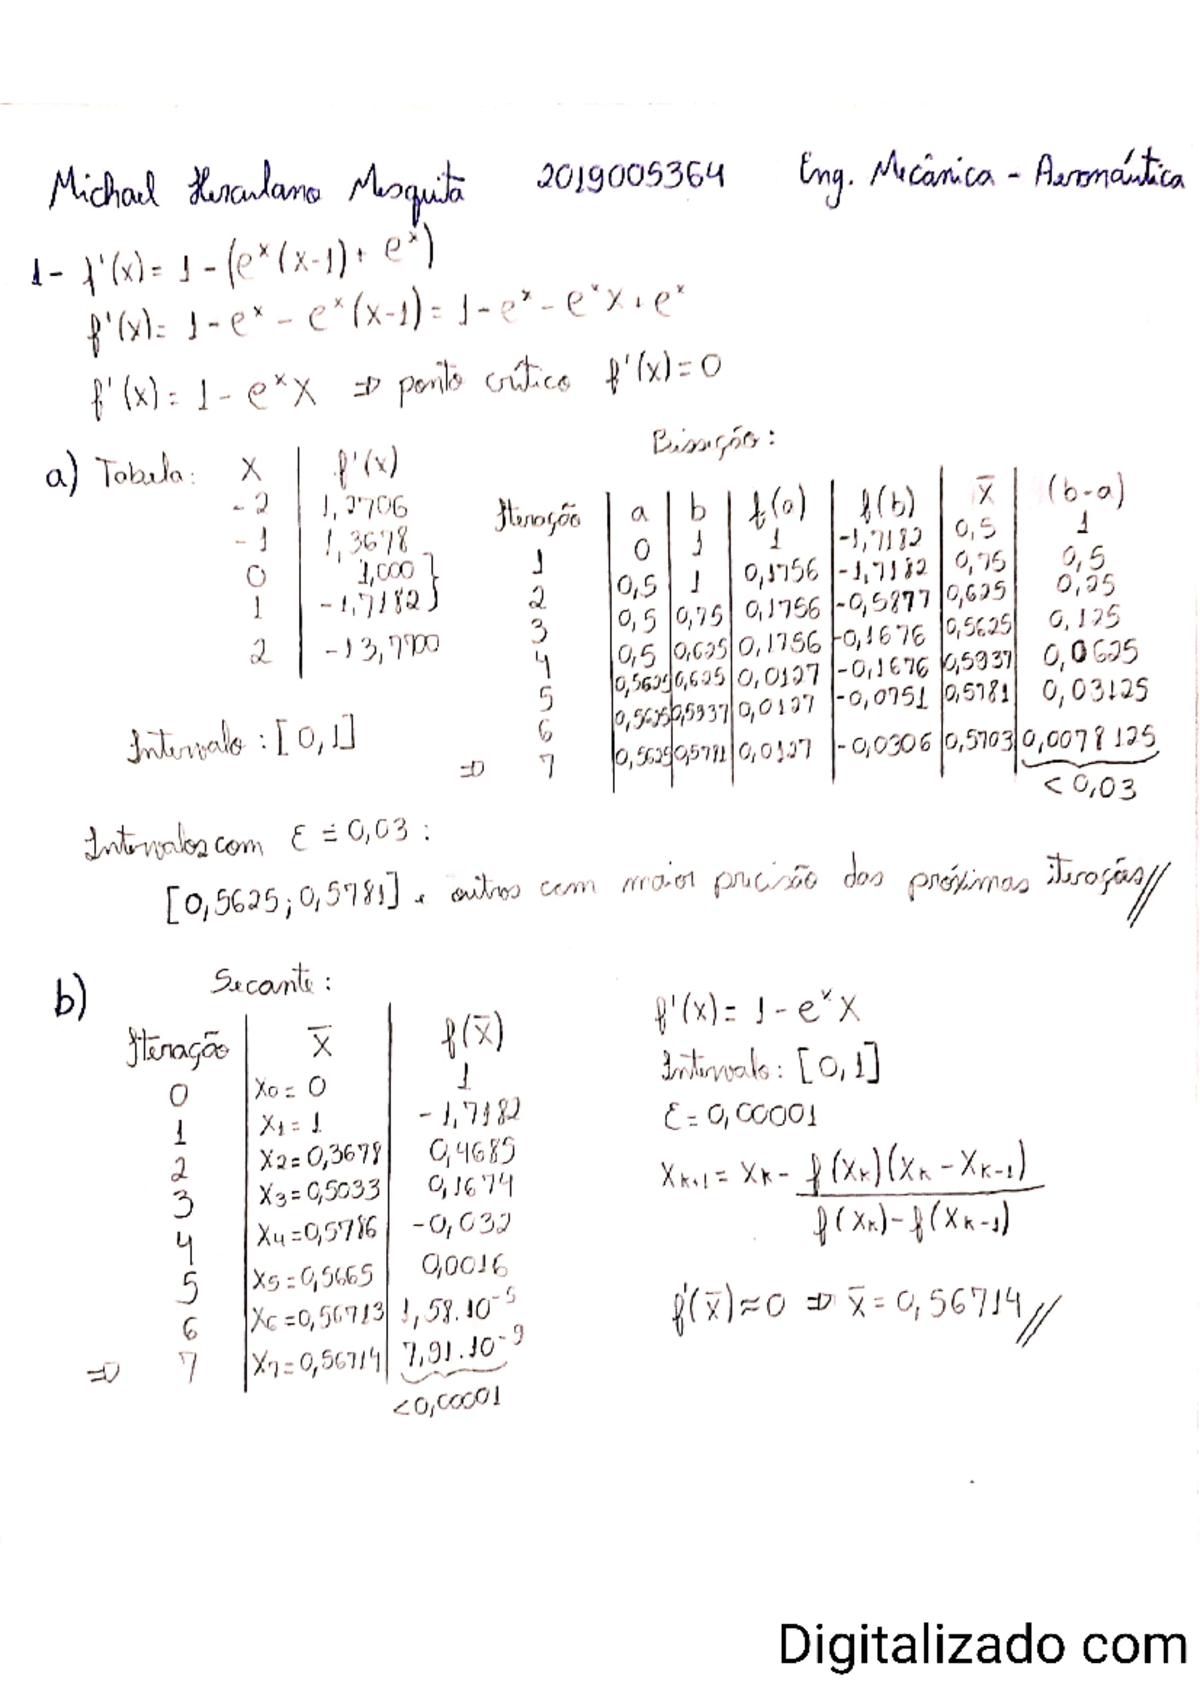 Michael Herculano Mesquita 2019005364 Eng. Mecânica - Aeronáutica
1- f'(x) = 1 - (e^x (x-1) + e^x)
f'(x) = 1 - e^x - e^x (x-1) = 1 - e^x - e^x x + e^x
f'(x) = 1 - e^x x ⇒ ponto crítico f'(x) = 0
a) Tabela: x | f'(x)
-2 | 1,2706
-1 | 1,3678
0 | 1,000
1 | -1,7182
2 | -13,7700
Intervalo: [0,1]
Bisseção:
Iteração | a | b | f(a) | f(b) | x̄ | (b-a)
1 | 0 | 1 | 1 | -1,7182 | 0,5 | 1
2 | 0,5 | 1 | 0,1756 | -1,7182 | 0,75 | 0,5
3 | 0,5 | 0,75 | 0,1756 | -0,5877 | 0,625 | 0,25
4 | 0,5 | 0,625 | 0,1756 | -0,1676 | 0,5625 | 0,125
5 | 0,5625 | 0,625 | 0,0127 | -0,1676 | 0,5937 | 0,0625
6 | 0,5625 | 0,5937 | 0,0127 | -0,0751 | 0,5781 | 0,03125
⇒ 7 | 0,5625 | 0,5781 | 0,0127 | -0,0306 | 0,5703 | 0,0078125
< 0,03
Intervalos com ε = 0,03:
[0,5625; 0,5781] e outros com maior precisão das próximas iterações//
b) Secante:
Iteração | x̄ | f(x̄)
0 | x0 = 0 | 1
1 | x1 = 1 | -1,7182
2 | x2 = 0,3678 | 0,4685
3 | x3 = 0,5033 | 0,1674
4 | x4 = 0,5786 | -0,032
5 | x5 = 0,5665 | 0,0016
6 | x6 = 0,56713 | 1,58.10^-5
⇒ 7 | x7 = 0,56714 | 7,91.10^-9
< 0,00001
f'(x) = 1 - e^x x
Intervalo: [0,1]
ε = 0,00001
x_{k+1} = x_k - f(x_k)(x_k - x_{k-1})
f(x_k) - f(x_{k-1})
f'(x̄) ≈ 0 ⇒ x̄ = 0,56714//
Digitalizado com